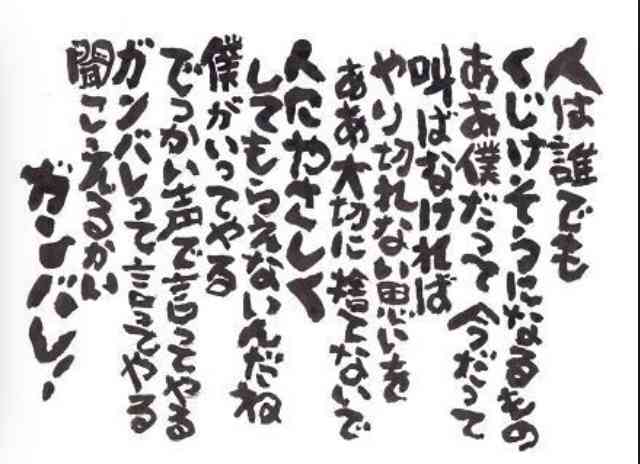 人は誰でも
くじけそうになるもの
ああ僕だって今だって
叫ばなければ
やり切れない思いを
ああ大切に捨てないで
人にやさしく
してもらえないんだね
僕がいってやる
でっかい声で言ってやる
ガンバレって言ってやる
聞こえるかい
ガンバレ!